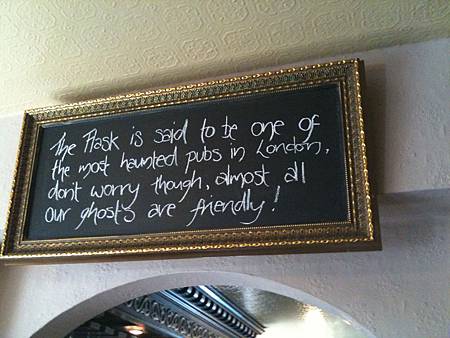 The Flask is said to be one of
the most haunted pubs in London,
dont worry though, almost all
our ghosts are friendly!